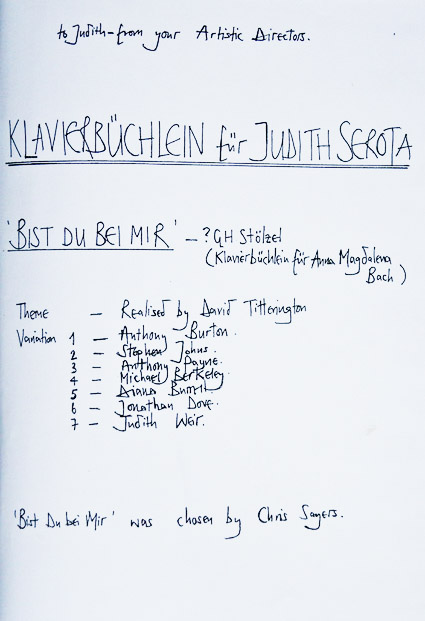 to Judith - from your Artistic Directors.
KLAVIERBÜCHLEIN für JUDITH SEROTA
'BIST DU BEI MIR' - ? GH Stölzel
(Klavierbüchlein für Anna Magdalena
Bach)
Theme - Realised by David Titterington
Variation 1 - Anthony Burton.
2 - Stephen Johns.
3 - Anthony Payne.
4 - Michael Berkeley.
5 - Diana Burrell.
6 - Jonathan Dove.
7 - Judith Weir.
'Bist Du bei Mir' was chosen by Chris Sayers.